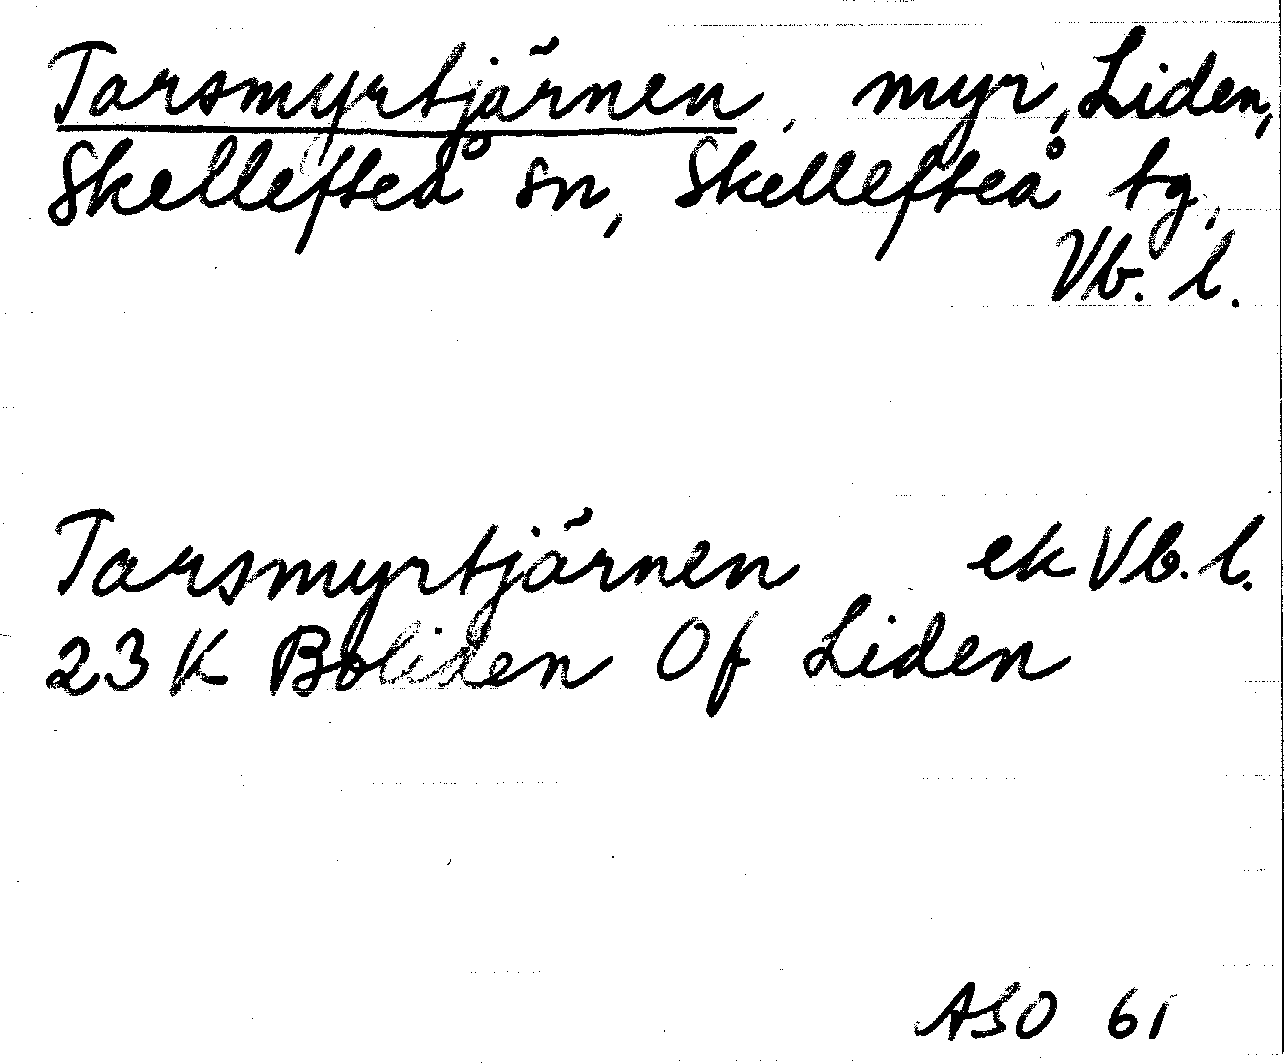 Tarsmyrtjärnen, myr, Liden,
Skellefteå sn, Skellefteå tg,
Vb. l.
Tarsmyrtjärnen ek Vb. l.
23 K Boliden Of Liden
ASO 61